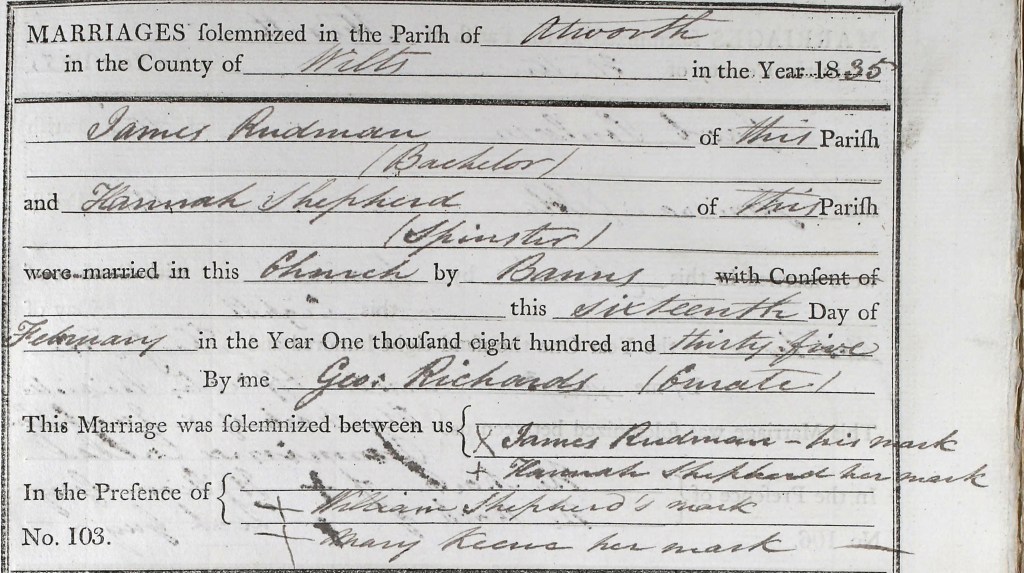 MARRIAGES ſolemnized in the Pariſh of Atworth
in the County of Wilts in the Year 1835
James Rudman of this Pariſh
(Bachelor)
and Hannah Shepherd of this Pariſh
(Spinster)
were married in this Church by Banns with Conſent of
this sixteenth Day of
February in the Year One thouſand eight hundred and thirty five
By me Geo: Richards (Curate)
This Marriage was ſolemnized between us { X James Rudman - his mark
+ Hannah Shepherd her mark
In the Preſence of { + William Shepherd's mark
No. 103. + Mary Keene her mark